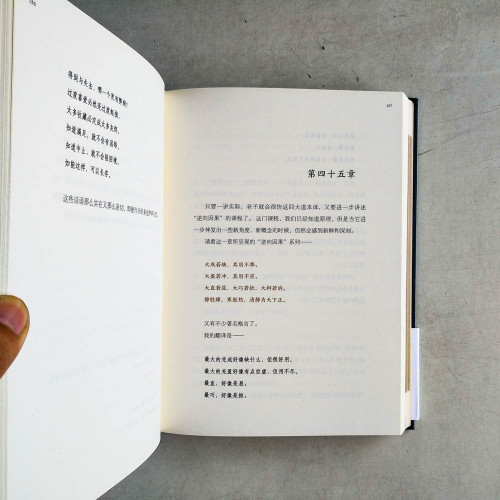 得到与失去，哪一个更有弊病？
过度喜爱必然是过度耗损，
太多收藏必定成太多亡佚。
知道满足，就不会有屈辱，
知道中止，就不会
如能这样，可以长存。
这些话语那么实在又那么亲切，
187
第四十五章
只要一讲实际，老子就会很快返回大道本体，又要进一步讲述
“逆向因果”的课程了。这门课程，我们已经知道原理，但是当它进
一步伸发出一些新角度、新概念的时候，仍然会感到新鲜和深刻。
请看这一章所呈现的“逆向因果”系列——
大成若缺，其用不弊。
大盈若冲，其用不穷。
大直若屈，大巧若拙，大辩若讷。
静胜躁，寒胜热，清静为天下正。
又有不少著名格言了。
我的翻译是——
最大的完成好像缺什么，但很好用。
最大的充盈好像有点空虚，但用不尽。
最直，好像是屈；
最巧，好像是拙；